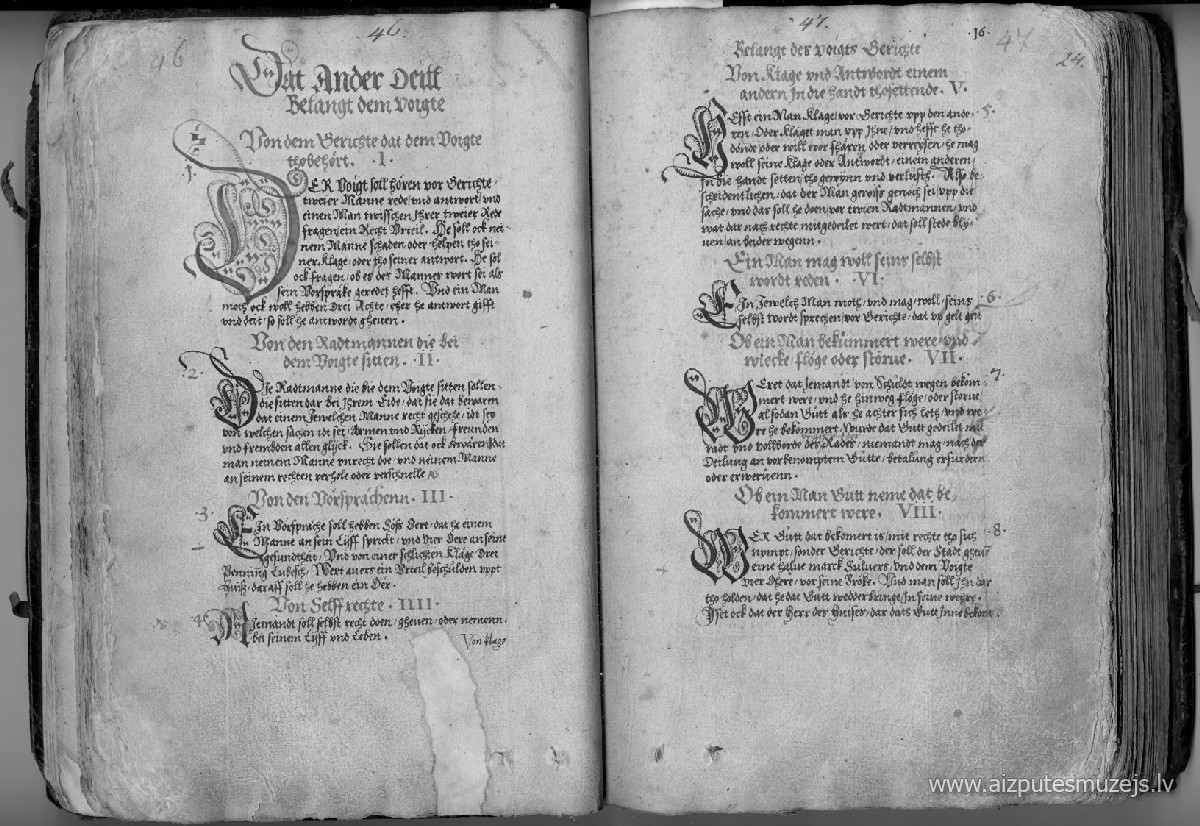 46
46.
Dat Ander Deill
Belangt dem Voigte
Von dem Gerichte dat dem Voigte
thobehört. ·I·
1.
DER Voigt soll hören vor Gerichte
tweier Manne rede vnd antwort vnd
einen Man twisschen Jhrer tweier Rede
fragen ein Recht Vrteil. He soll ock nei-
nem Manne schaden oder helpen tho sei-
ner Klage oder tho seiner antwort. He sol
ock fragen ob es des Mannes wort sei als
sein Vorsprake geredet hefft. Vnd ein Man
moth ock woll hebben drei Achte eher he antwort gifft
vnd deit so soll he antwordt gheuen.
Von den Radtmannen die bei
dem Voigte sitten. ·II·
2.
DJe Radtmanne die bie dem Voigte sitten sollen
die sitten dar bei Jhrem Eide dat sie dat bewaren
dat einem Jewelchen Manne recht geschehe idt sey
von welchen sachen idt sei Armen vnd Rycken freunden
vnd frembden allen glyck. Sie sollen dat ock bewaren dat
man neinem Manne vnrecht doe vnd neinem Manne
an seinem rechten verhole oder verschnelle
Von den Vorsprachenn. III·
3.
EJn Vorsprache soll hebben Söss Oere dat he einem
Manne an sein Lyff spricht vnd Vier Oere an seine
gesundtheit Vnd von einer schlichten Klage Drei
Penning Lubesch Wert auers ein Vrteil beschulden vppt
Huiss daraff soll he hebben ein Oer.
Von Selffrechte. IIII·
4.
NJemandt soll selbst recht doen gheuen oder nemenn
bei seinen Lyff vnd Leben.
Von klage
47.
·16·
47
24.
Belangt des Voigts Gerichte
Von Klage vnd Antwordt einem
andern Jn die handt thosettende. V.
5.
HEfft ein Man Klage vor Gerichte vpp den ande-
ren Oder klaget man vpp Jhne vnd hefft he tho
donde oder will wor fharen oder verreysen he mag
woll seine Klage oder Antwordt einem anderen
Jn die handt setten tho gewynn vnd verlusth. Also be-
scheidentlichen dat der Man gewiss genoch sei vpp die
sache vnd das soll he doen vor twien Radtmannen vnd
wat dar nach rechte mitgedeilet wert dat soll stede bly-
uen an beider wegenn.
Ein Man mag woll seins selbst
wordt reden. ·VI·
6.
EJn Jewelch Man moth vnd mag woll seins
selbst wordt sprechen vor Gerichte dat vp gele
Ob ein Man bekümmert were vnd
wiecke flöge oder störue. VII.
7.
WEret dat Jemandt von Schuldt wegen bekom-
mert were vnd he hinweg flöge oder storue
alsodan Gutt als he achter sich leth vnd we-
re he bekommert wurde dat Gutt gedeilet mit
radt vnd vollborde der Räder niemandt mag nach der
Deilung an vorbenomptem Gutte betalung erfurdern
oder erweruenn.
Ob ein Man Gutt neme dat be-
kommert were. VIII.
8.
WER Gutt dat bekomert is mit rechte tho sich
nympt sonder Gerichte der soll der Stadt gheuē
eine halue marck Suluers vnd dem Voigte
Vier Ohere vor seine Bröke. Vnd man soll Jhn dar
tho holden dat he dat Gutt wedder bringe Jn seine wehre.
Jst ock dat der Herr des Huises dar dats Gutt Jnne bekom
www.aizputesmuzejs.lv